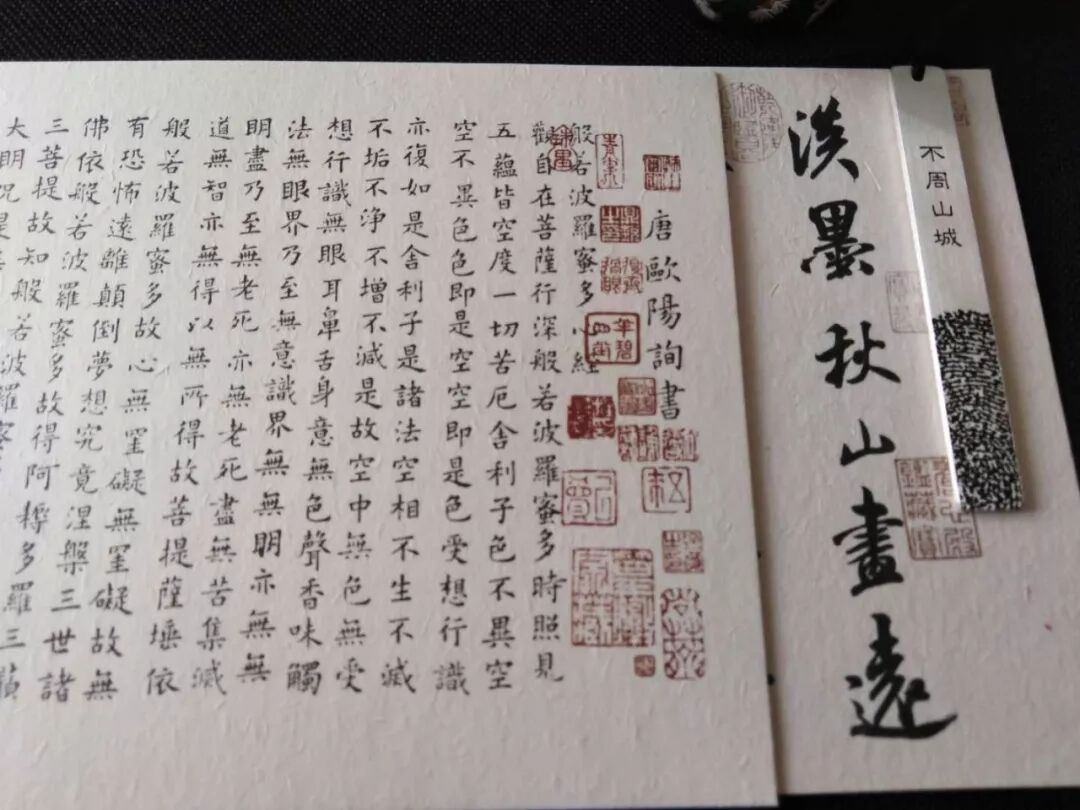 不周山城
淡墨秋山畫遠
唐歐陽詢書
般若波羅蜜多心經
觀自在菩薩行深般若波羅蜜多時照見
五蘊皆空度一切苦厄舍利子色不異空
空不異色色即是空空即是色受想行識
亦復如是舍利子是諸法空相不生不滅
不垢不淨不增不減是故空中無色無受
想行識無眼耳鼻舌身意無色聲香味觸
法無眼界乃至無意識界無無明亦無無
明盡乃至無老死亦無老死盡無苦集滅
道無智亦無得以無所得故菩提薩埵依
般若波羅蜜多故心無罣礙無罣礙故無
有恐怖遠離顛倒夢想究竟涅槃三世諸
佛依般若波羅蜜多故得阿耨多羅三藐
三菩提故知般若波羅蜜
大明咒是